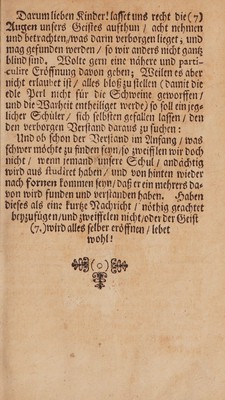 Darum lieben Kinder! lasset uns recht die (7)
Augen unsers Geistes aufthun/ acht nehmen
und betrachten/was vor verborgen lieget; und
mag gefunden werden/ so wir anders nicht gantz
blind sind. Wolte gern eine nähere und parti-
culire Eröffnung davon geben; Weilen es aber
nicht erlaubet ist/ alles bloß zu stellen (damit die
edle Perl nicht für die Schweine geworffen/
und die Warheit entheiliget werde) so soll ein jeg-
licher Schüler/ sich selbsten gefallen lassen/ den
den verborgen Verstand daraus zu suchen:
Und ob schon der Verstand im Anfang/ was
schwer möchte zu finden seyn/so zweiflen wir doch
nicht/ wenn jemand unsere Schul/ andächtig
wird aus studiret haben/ und von hinten wieder
nach fornen kommen seyn/daß er ein mehrers da-
von wird funden und verstanden haben. Haben
dieses als eine kurtze Nachricht/ nöthig geachtet
beyzufügen/und zweiffelen nicht/oder der Geist
(7.)wird alles selber eröffnen/ lebet
wohl!
(o)